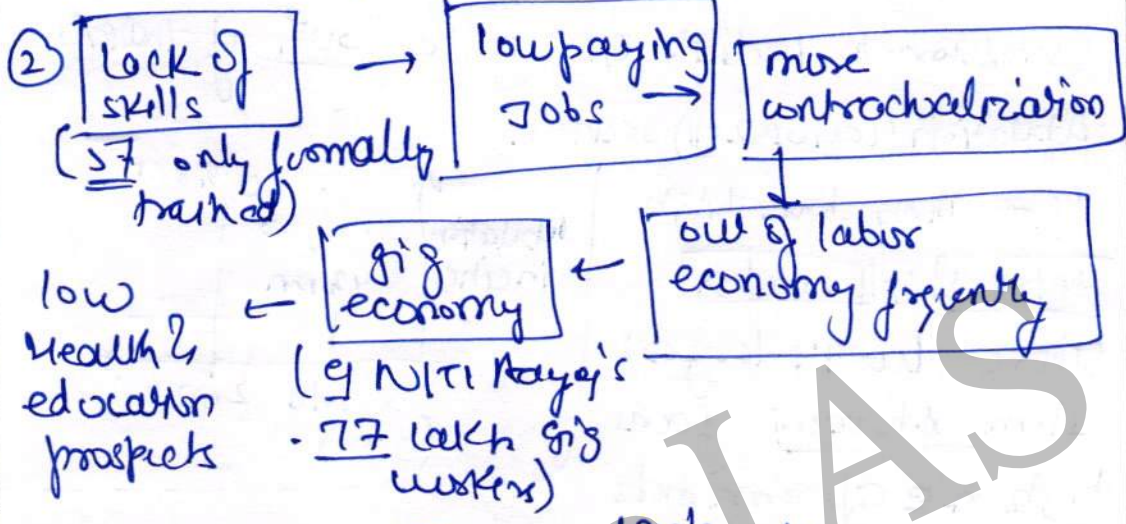 ② Lack of skills → low paying Jobs → more contractualization
(57 only formally trained)
out of labor economy frequently
← gig economy
(eg NITI Aayog's
. 77 lakh gig workers)
← low Health & education prospects
IAS